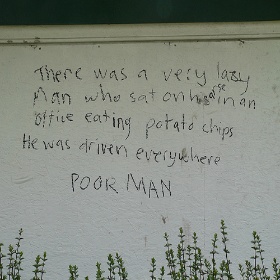 There was a very lazy
man who sat on his arse in an
office eating potato chips
He was driven everywhere
POOR MAN